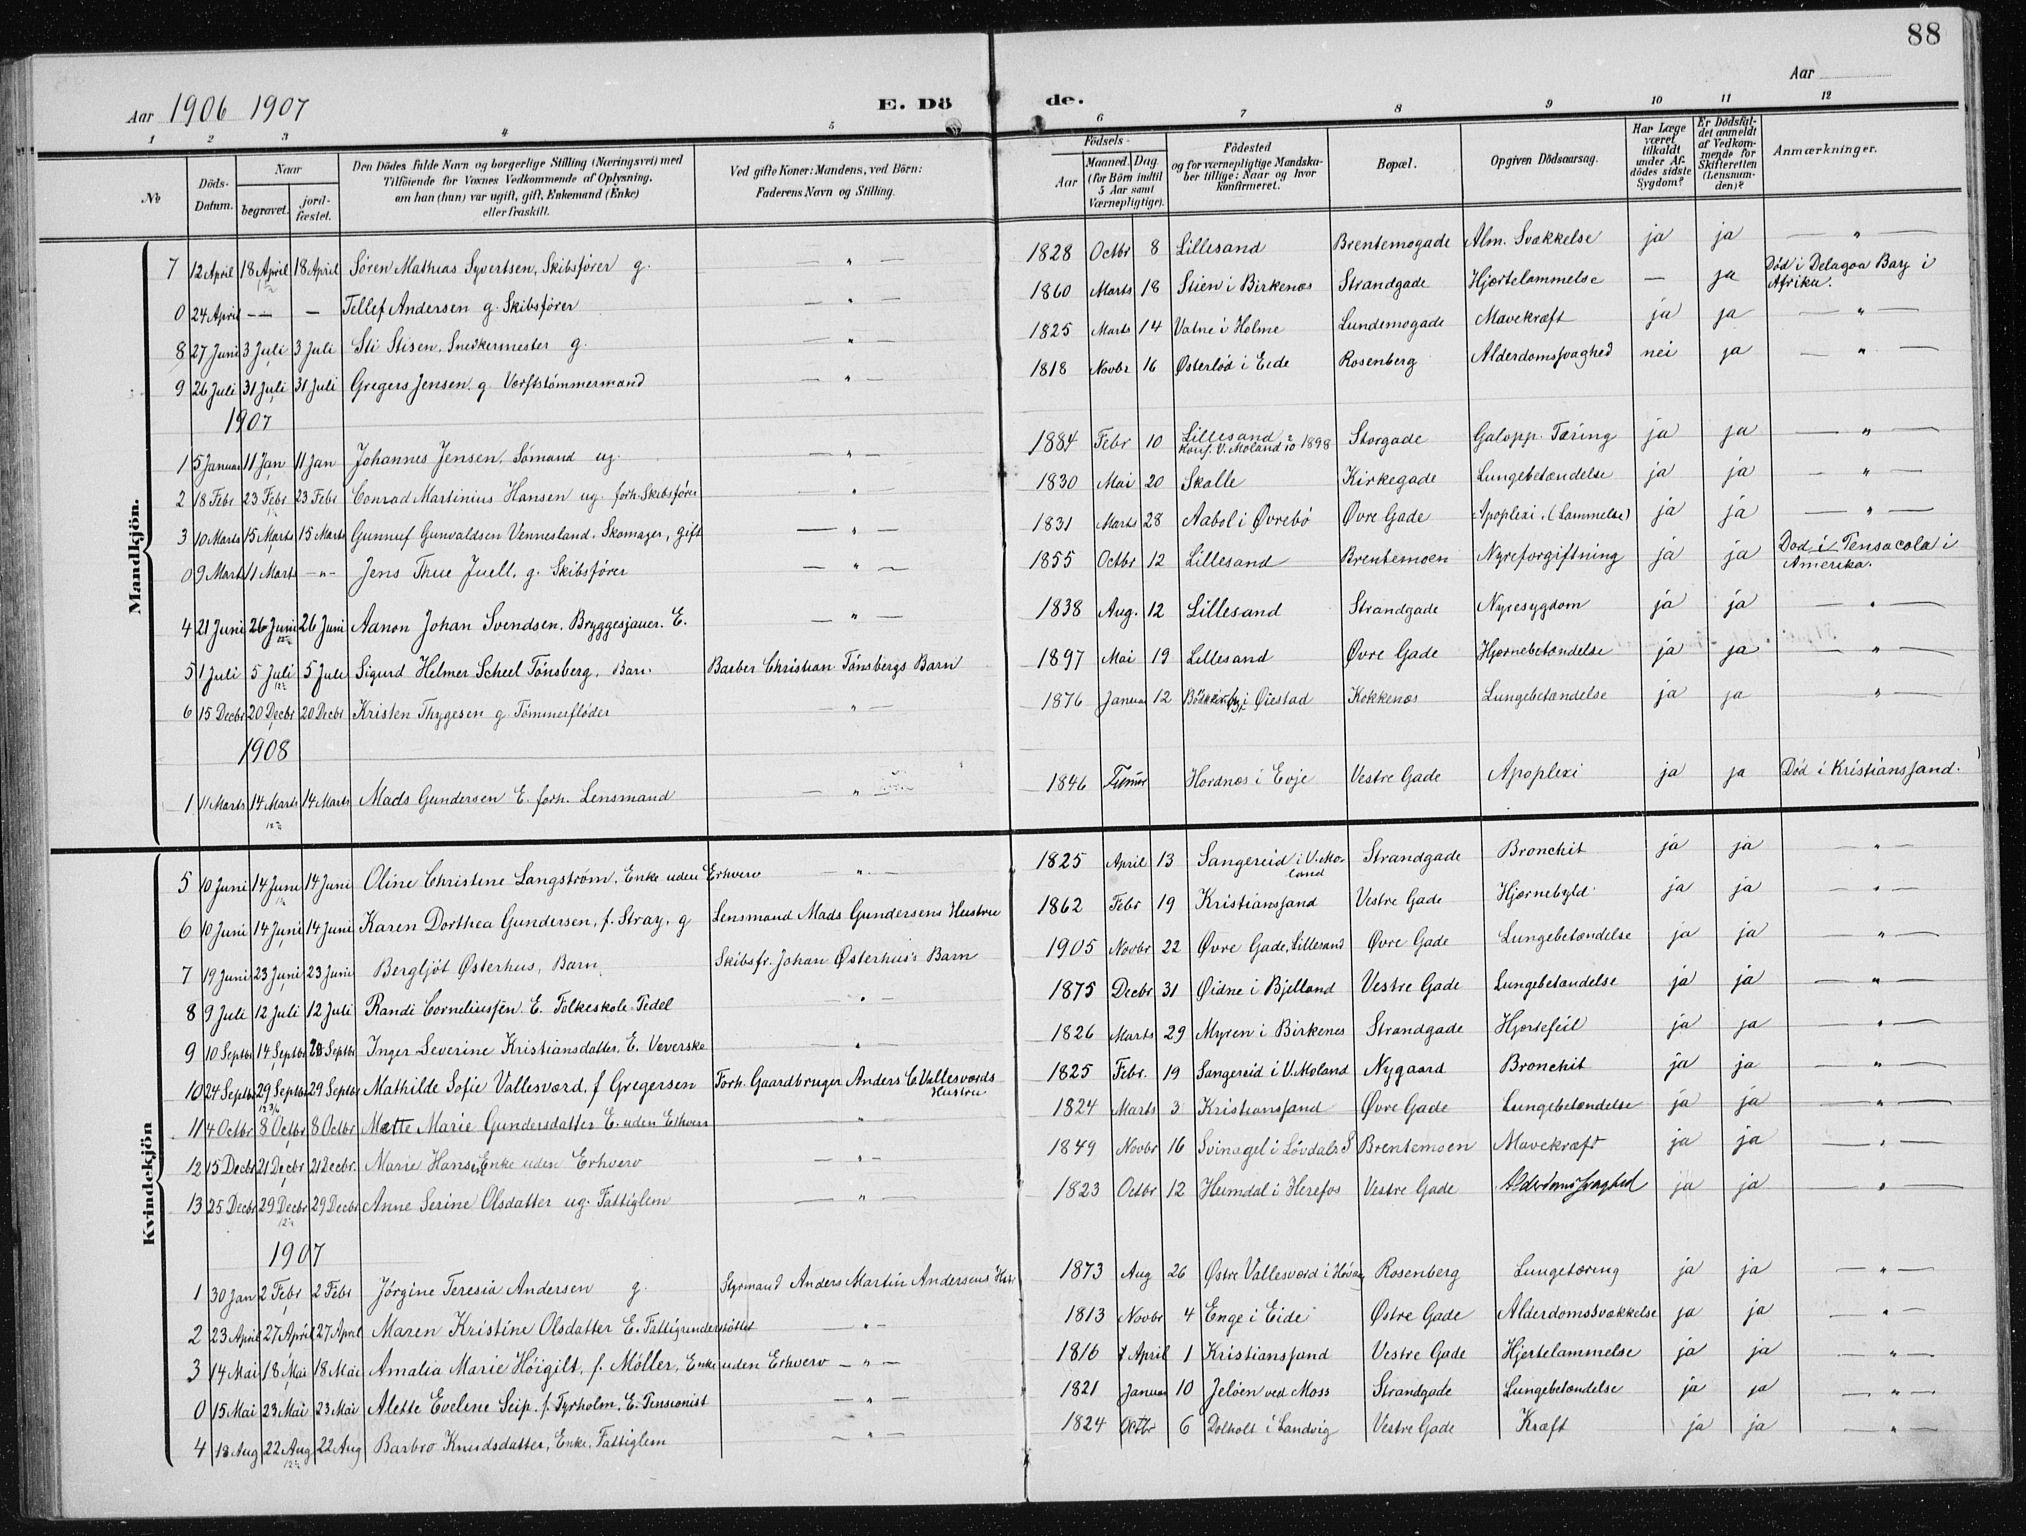 88
Aar 1906 1907 E. Dö de. Aar
1 2 3 4 5 6 7 8 9 10 11 12
No Döds-Datum. Naar begravet. jordfæstet. Den Dödes fulde Navn og borgerlige Stilling (Næringsvei) med Tilföiende for Voxnes Vedkommende af Oplysning, om han (hun) var ugift, gift, Enkemand (Enke) eller fraskilt. Ved gifte Koner: Mandens, ved Börn: Faderens Navn og Stilling. Födsels- Aar Maaned. Dag. (for Börn indtil 5 Aar samt Værnepligtige). Födested og for værnepligtige Mandskaber tillige: Naar og hvor konfirmeret. Bopæl. Opgiven Dödsaarsag. Har Læge været tilkaldt under Afdödes sidste Sygdom? Er Dödsfaldet anmeldt af Vedkommende for Skifteretten (Lensmanden)? Anmærkninger.
Mandkjön.
7 12 April 18 April 18 April Søren Mathias Syvertsen, Skibsfører g. — " — 1828 Octbr 8 Lillesand Brentemogade Alm. Svækkelse ja ja — " —
0 24 April — — — Tellef Andersen g. Skibsfører — " — 1860 Marts 18 Stien i Birkenes Strandgade Hjertelammelse — ja Død i Delagoa Bay i Afrika.
8 27 Juni 3 Juli 3 Juli Sti Stisen, Snedkermester g. — " — 1825 Marts 14 Vatne i Holme Lundemogade Mavekræft ja ja — " —
9 26 Juli 31 Juli 31 Juli Gregers Jensen g. Værftstømmermand — " — 1818 Novbr 16 Østerlød i Eide Rosenberg Alderdomssvaghed nei ja — " —
1907
1 5 Januar 11 Jan 11 Jan Johannes Jensen, Sømand ug. — " — 1884 Febr 10 Lillesand Konf. V. Moland 1898 Storgade Galopp. Tæring ja ja — " —
2 18 Febr 23 Febr 23 Febr Conrad Martinius Hansen ug. forh. Skibsfører " 1830 Mai 20 Skalle Kirkegade Lungebetændelse ja ja — " —
3 10 Marts 15 Marts 15 Marts Gunnuf Gunvaldsen Vennesland. Skomager, gift — " — 1831 Marts 28 Aabol i Øvrebø Øvre Gade Apoplexi. (Lammelse) ja ja — " —
0 9 Marts 11 Marts — " — Jens Thue Juell, g. Skibsfører — " — 1855 Octbr 12 Lillesand Brentemoen Nyreforgiftning ja ja Død i Pensacola i Amerika.
4 21 Juni 26 Juni 26 Juni Adnon Johan Svendsen. Bryggesjauer. E. — " — 1838 Aug. 12 Lillesand Strandgade Nyresygdom ja ja — " —
5 1 Juli 5 Juli 5 Juli Sigurd Helmer Scheel Tønsberg, Barn Barber Christian Tønsbergs Barn 1897 Mai 19 Lillesand Øvre Gade Hjernebetændelse ja ja — " —
6 15 Decbr 20 Decbr 20 Decbr Kristen Thygesen g Tømmerfløder — " — 1876 Januar 12 i Øiestad Kokkenes Lungebetændelse ja ja "
1908
1 11 Marts 14 Marts 14 Marts Mads Gundersen E. forh. Lensmand — " — 1846 Hordnes i Evje Vestre Gade Apoplexi ja ja Død i Kristianssand.
Kvindekjön
5 10 Juni 14 Juni 14 Juni Oline Christine Langstrøm, Enke uden Erhverv — " — 1825 April 13 Sangereid i V. Moland Strandgade Bronchit ja ja — " —
6 10 Juni 14 Juni 14 Juni Karen Dorthea Gundersen, f. Stray, g Lensmand Mads Gundersens Hustru 1862 Febr 19 Kristianssand Vestre Gade Hjernebyld. ja ja — " —
7 19 Juni 23 Juni 23 Juni Bergljót Østerhus, Barn Skibsfr. Johan Østerhus's Barn 1905 Novbr 22 Øvre Gade, Lillesand Øvre Gade Lungebetændelse ja ja — " —
8 9 Juli 12 Juli 12 Juli Randi Corneliussen E. Folkeskole-Pedel — " — 1875 Decbr 31 Øidne i Bjelland Vestre Gade Lungebetændelse ja ja — " —
9 10 Septbr 14 Septbr Septbr Inger Severine Kristiansdatter, E. Væverske — " — 1826 Marts 29 Myren i Birkenes Strandgade Hjertefeil ja ja — " —
10 24 Septbr 29 Septbr 29 Septbr Mathilde Sofie Vallesværd, f Gregersen Forh. Gaardbruger Anders C. Vallesværds Hustru 1825 Febr. 19 Sangereid i V. Moland Nygaard Bronchit ja ja — " —
11 4 Octbr 8 Octbr 8 Octbr Mætte Marie Gundersdatter E. uden Erhverv " 1824 Marts 3 Kristianssand Øvre Gade Lungebetændelse ja ja — " —
12 15 Decbr 21 Decbr 21 Decbr. Marie Hansen Enke uden Erhverv — " — 1849 Novbr 16 Svinagel i Løvdals S Brentemoen Mavekræft ja ja — " —
13 25 Decbr 29 Decbr 29 Decbr Anne Serine Olsdatter ug. Fattiglem — " — 1823 Octbr 12 Heimdal i Herefos Vestre Gade Alderdomssvaghed ja ja — " —
1907
1 30 Jan 2 Febr 2 Febr Jørgine Teresia Andersen g. Styrmand Anders Martin Andersens Hstr 1873 Aug 26 Østre Vallesværd i Høvåg Rosenberg Lungetæring ja ja — " —
2 23 April 27 April 27 April Maren Kristine Olsdatter E. Fattigunderstøttet — " — 1813 Novbr 4 Enge i Eide Østre Gade Alderdomssvækkelse ja ja — " —
3 14 Mai 18 Mai 18 Mai Amalia Marie Höigilt, f. Møller, Enke uden Erhverv — " — 1816 April 1 Kristianssand Vestre Gade Hjertelammelse ja ja — " —
0 15 Mai 23 Mai 23 Mai Alette Evelene Seip, f. Fyrholm, E. Pensionist — " — 1821 Januar 10 Jeløen ved Moss Strandgade Lungebetændelse ja ja — " —
4 18 Aug 22 Aug 22 Aug Barbro Knudsdatter, Enke, Fattiglem — " — 1824 Octbr 6 Dolholt i Landvig Vestre Gade Kræft ja ja — " —